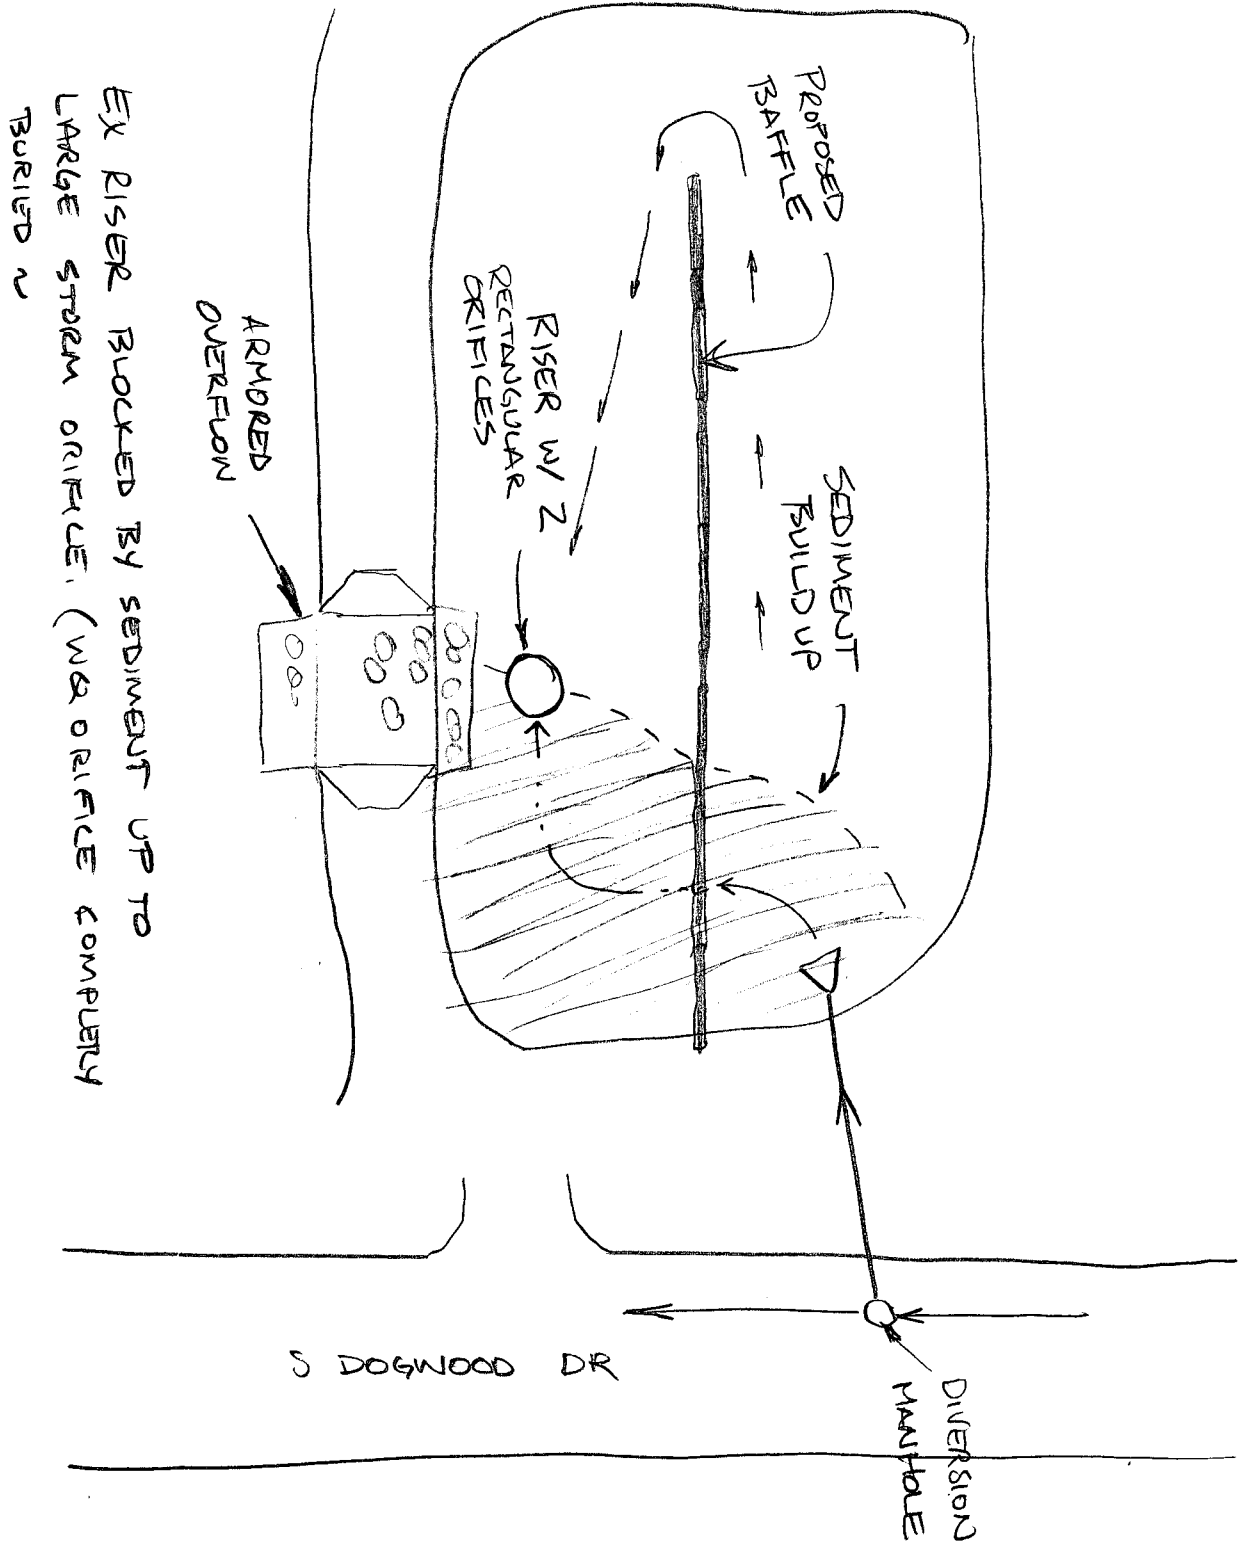 PROPOSED
BAFFLE
SEDIMENT
BUILD UP
RISER W/ 2
RECTANGULAR
ORIFICES
ARMORED
OVERFLOW
EX RISER BLOCKED BY SEDIMENT UP TO
LARGE STORM ORIFICE. (WQ ORIFICE COMPLETLY
BURIED ~
S DOGWOOD DR
DIVERSION
MANHOLE